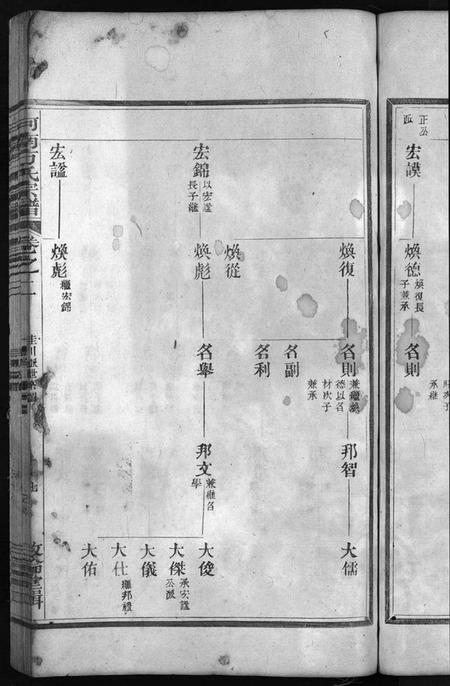 正公
派
宏謨
煥德
煥復長
子兼承
名則
次子
承繼
煥復
名則
兼繼煥
德以名
材次子
兼承
邦智
大儒
名副
煥從
名利
宏錦
以宏謐
長子繼
煥彪
名舉
邦文
兼繼名
學
大俊
大傑
承宏謐
公派
大儀
大仕
繼邦禮
大佑
宏謐
煥彪
繼宏錦
河南方氏宗譜
卷之二